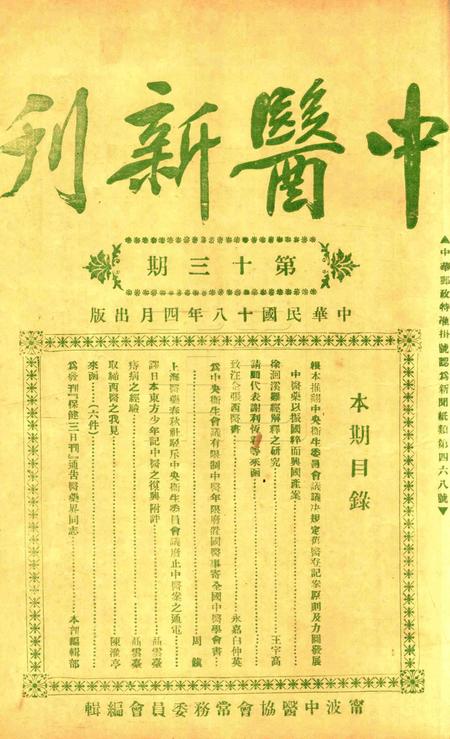 中醫新刊
第十三期
中華民國十八年四月出版
▲中華郵政特准掛號認爲新聞紙類第四六八號▼
本期目錄
報本推翻中央衞生委員會議議決規定舊醫登記案原則及力圖發展
中醫藥以振國粹而興國產案
徐洄溪難經解釋之研究……王宇高
請願代表謝利恆君等來函
致汪企張西醫書……永嘉白仲英
爲中央衞生會議有限制中醫年限廢置國醫事寄全國中醫學會書……周鎮
上海醫藥春秋社駁斥中央衞生委員會議廢止中醫案之通電
譯日本東方少年記中醫之復興附許……雲臺
痧病之經驗……雲臺
取締西醫之我見……陳亭
來函……(六件)
爲發刊『保健三日刊』通告醫藥界同志……本刊編輯部
甯波中醫協會常務委員會編輯